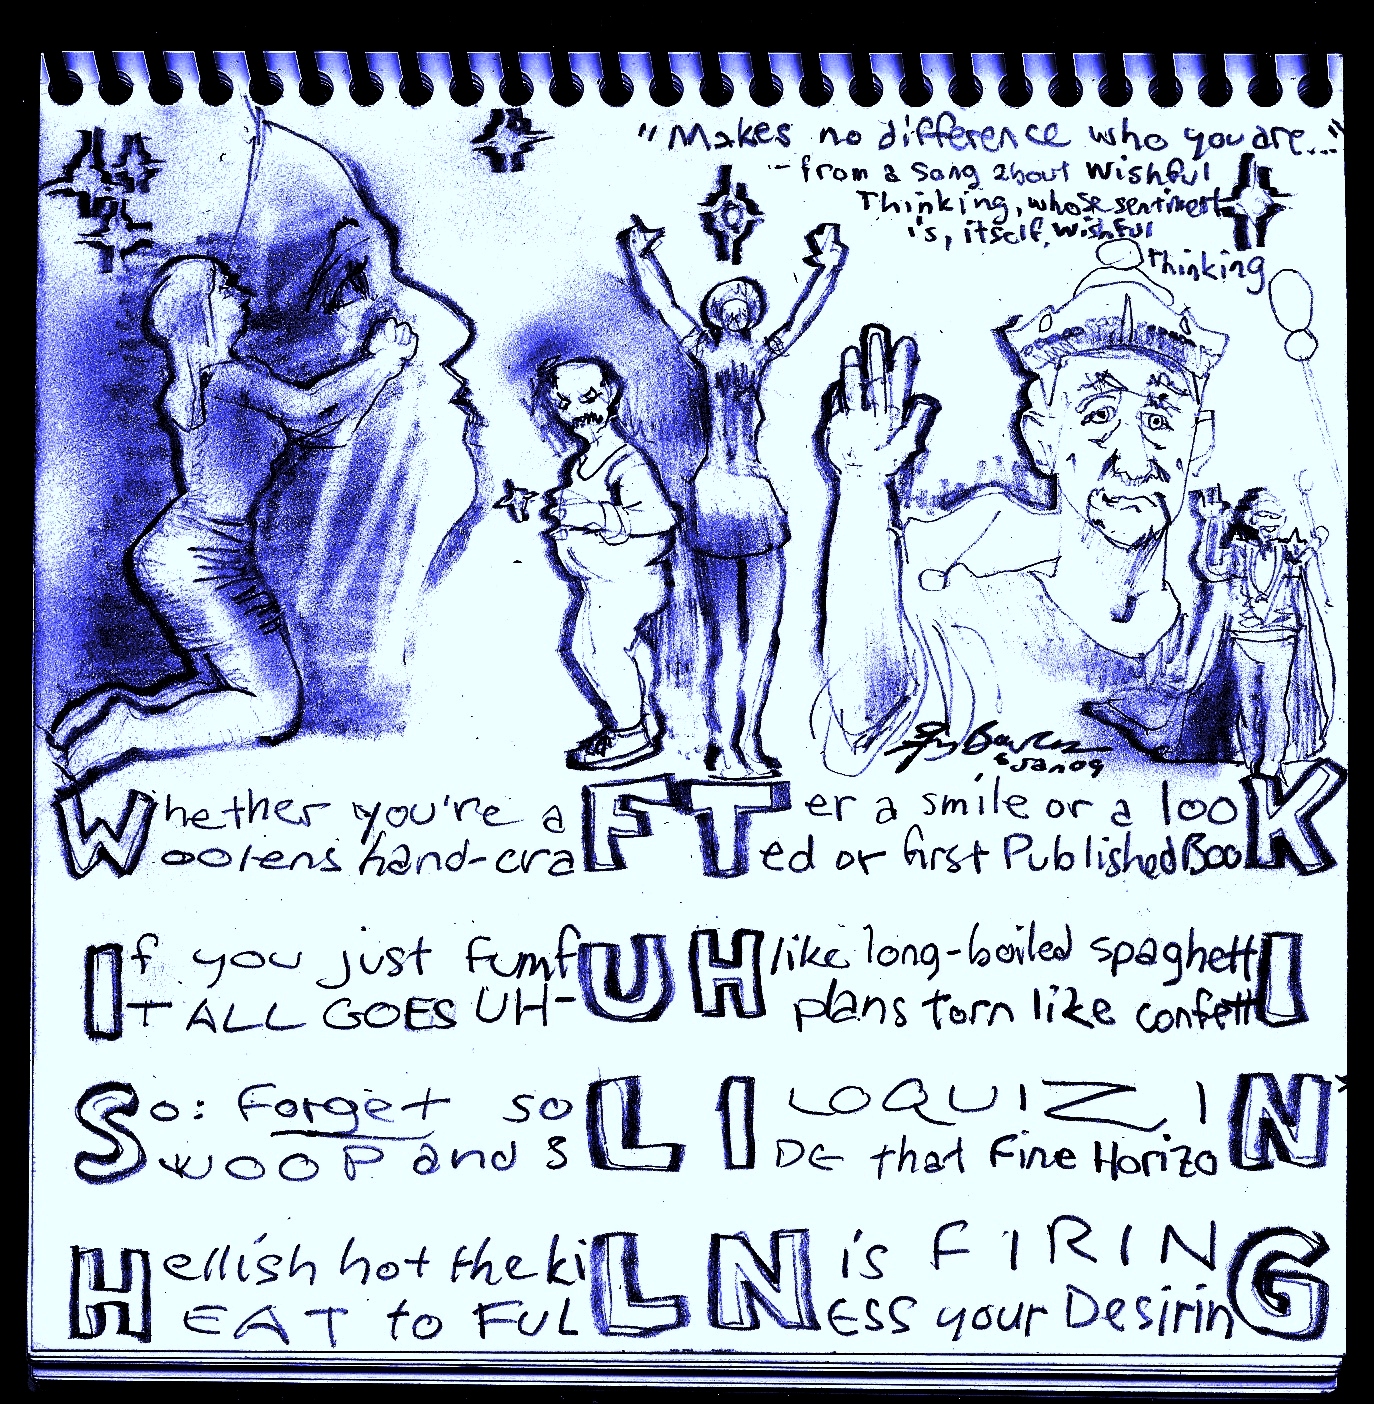 "Makes no difference who you are..."
- from a song about Wishful
Thinking, whose sentiment
is, itself, wishful
thinking
6 Jan 09
Whether you're a FTer a smile or a looK
Woolens hand-craFTed or first Published BooK
If you just fumfUH like long-boiled spaghettI
IT ALL GOES UH-UH plans torn like confettI
So: Forget soLILOQUIZIN
Swoop and SLIDE that Fine HorizoN
Hellish hot the kiLN is FIRING
HEAT to FULLNESS your DesirinG